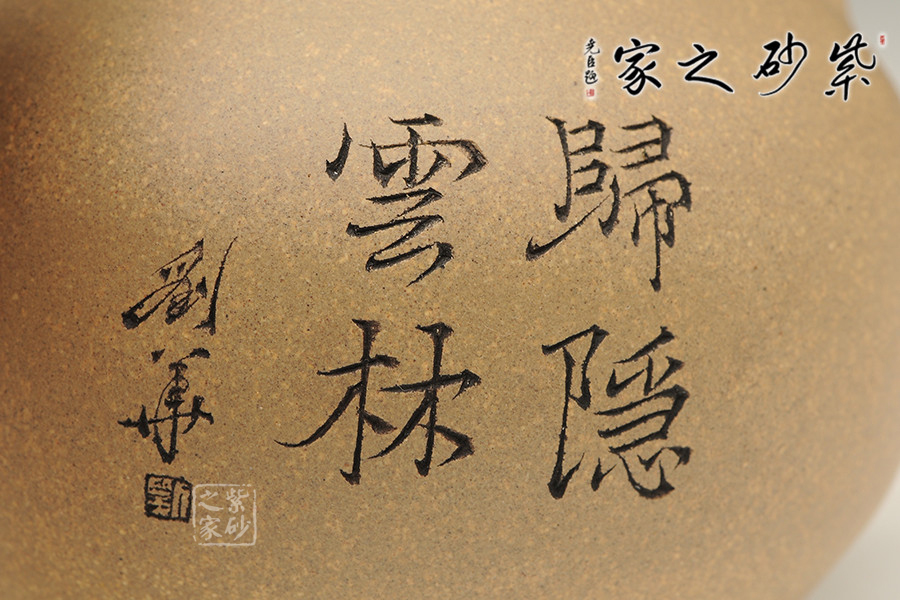 紫砂之家
尭臣題
歸隱
雲林
劉華
劉
紫砂
之家